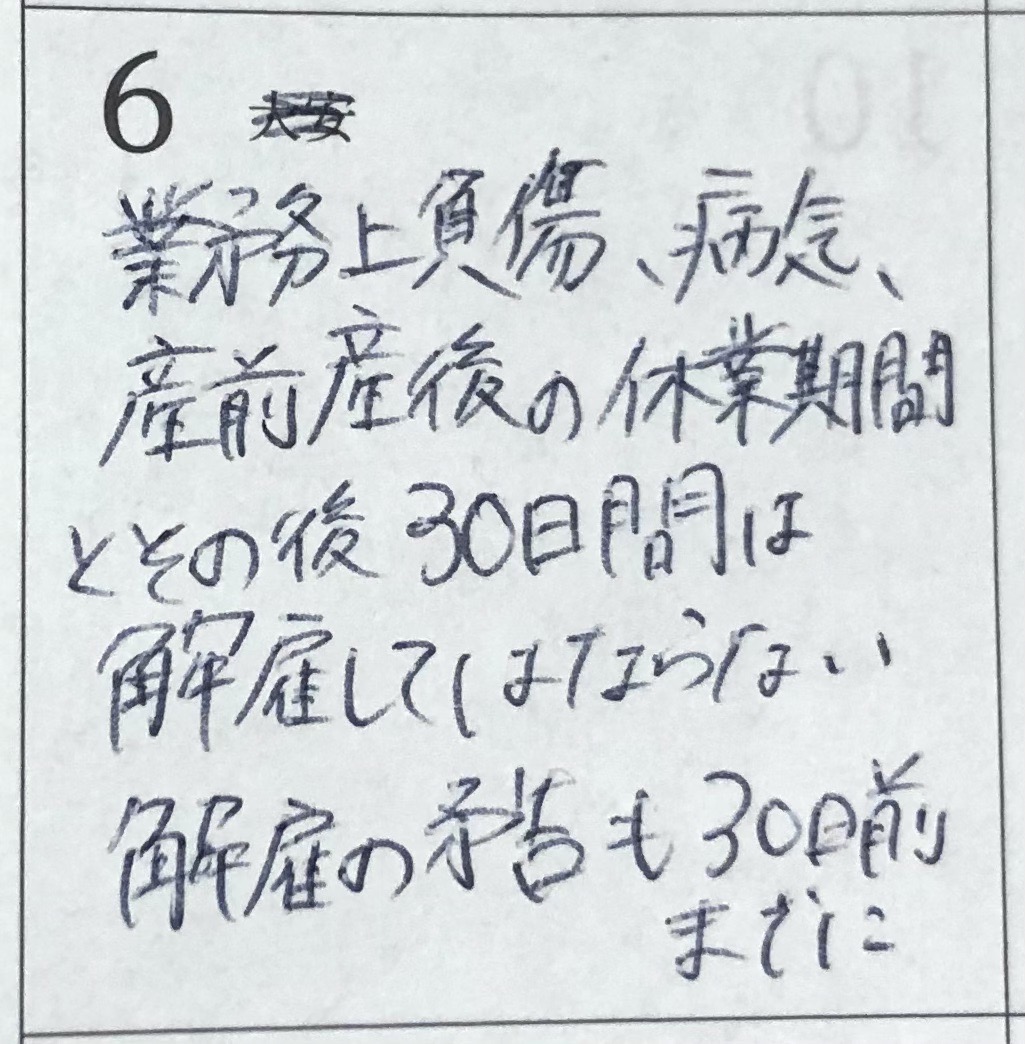 6 大安
業務上負傷、病気、
産前産後の休業期間
とその後30日間は
解雇してはならない
解雇の予告も30日前
までに